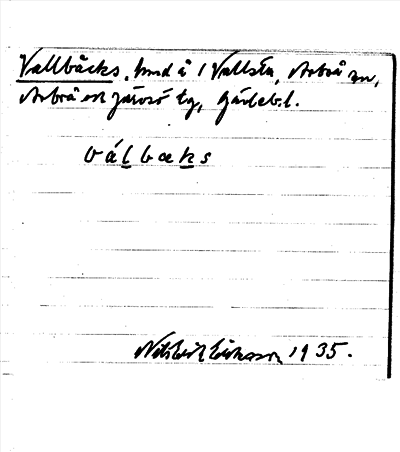 Vallbäcks, hmd å 1 Vallsta, Arbrå sn,
Arbrå och Järvsö tg, Gävleb.l.
válbaks
Nils Erik Eriksson 1935.